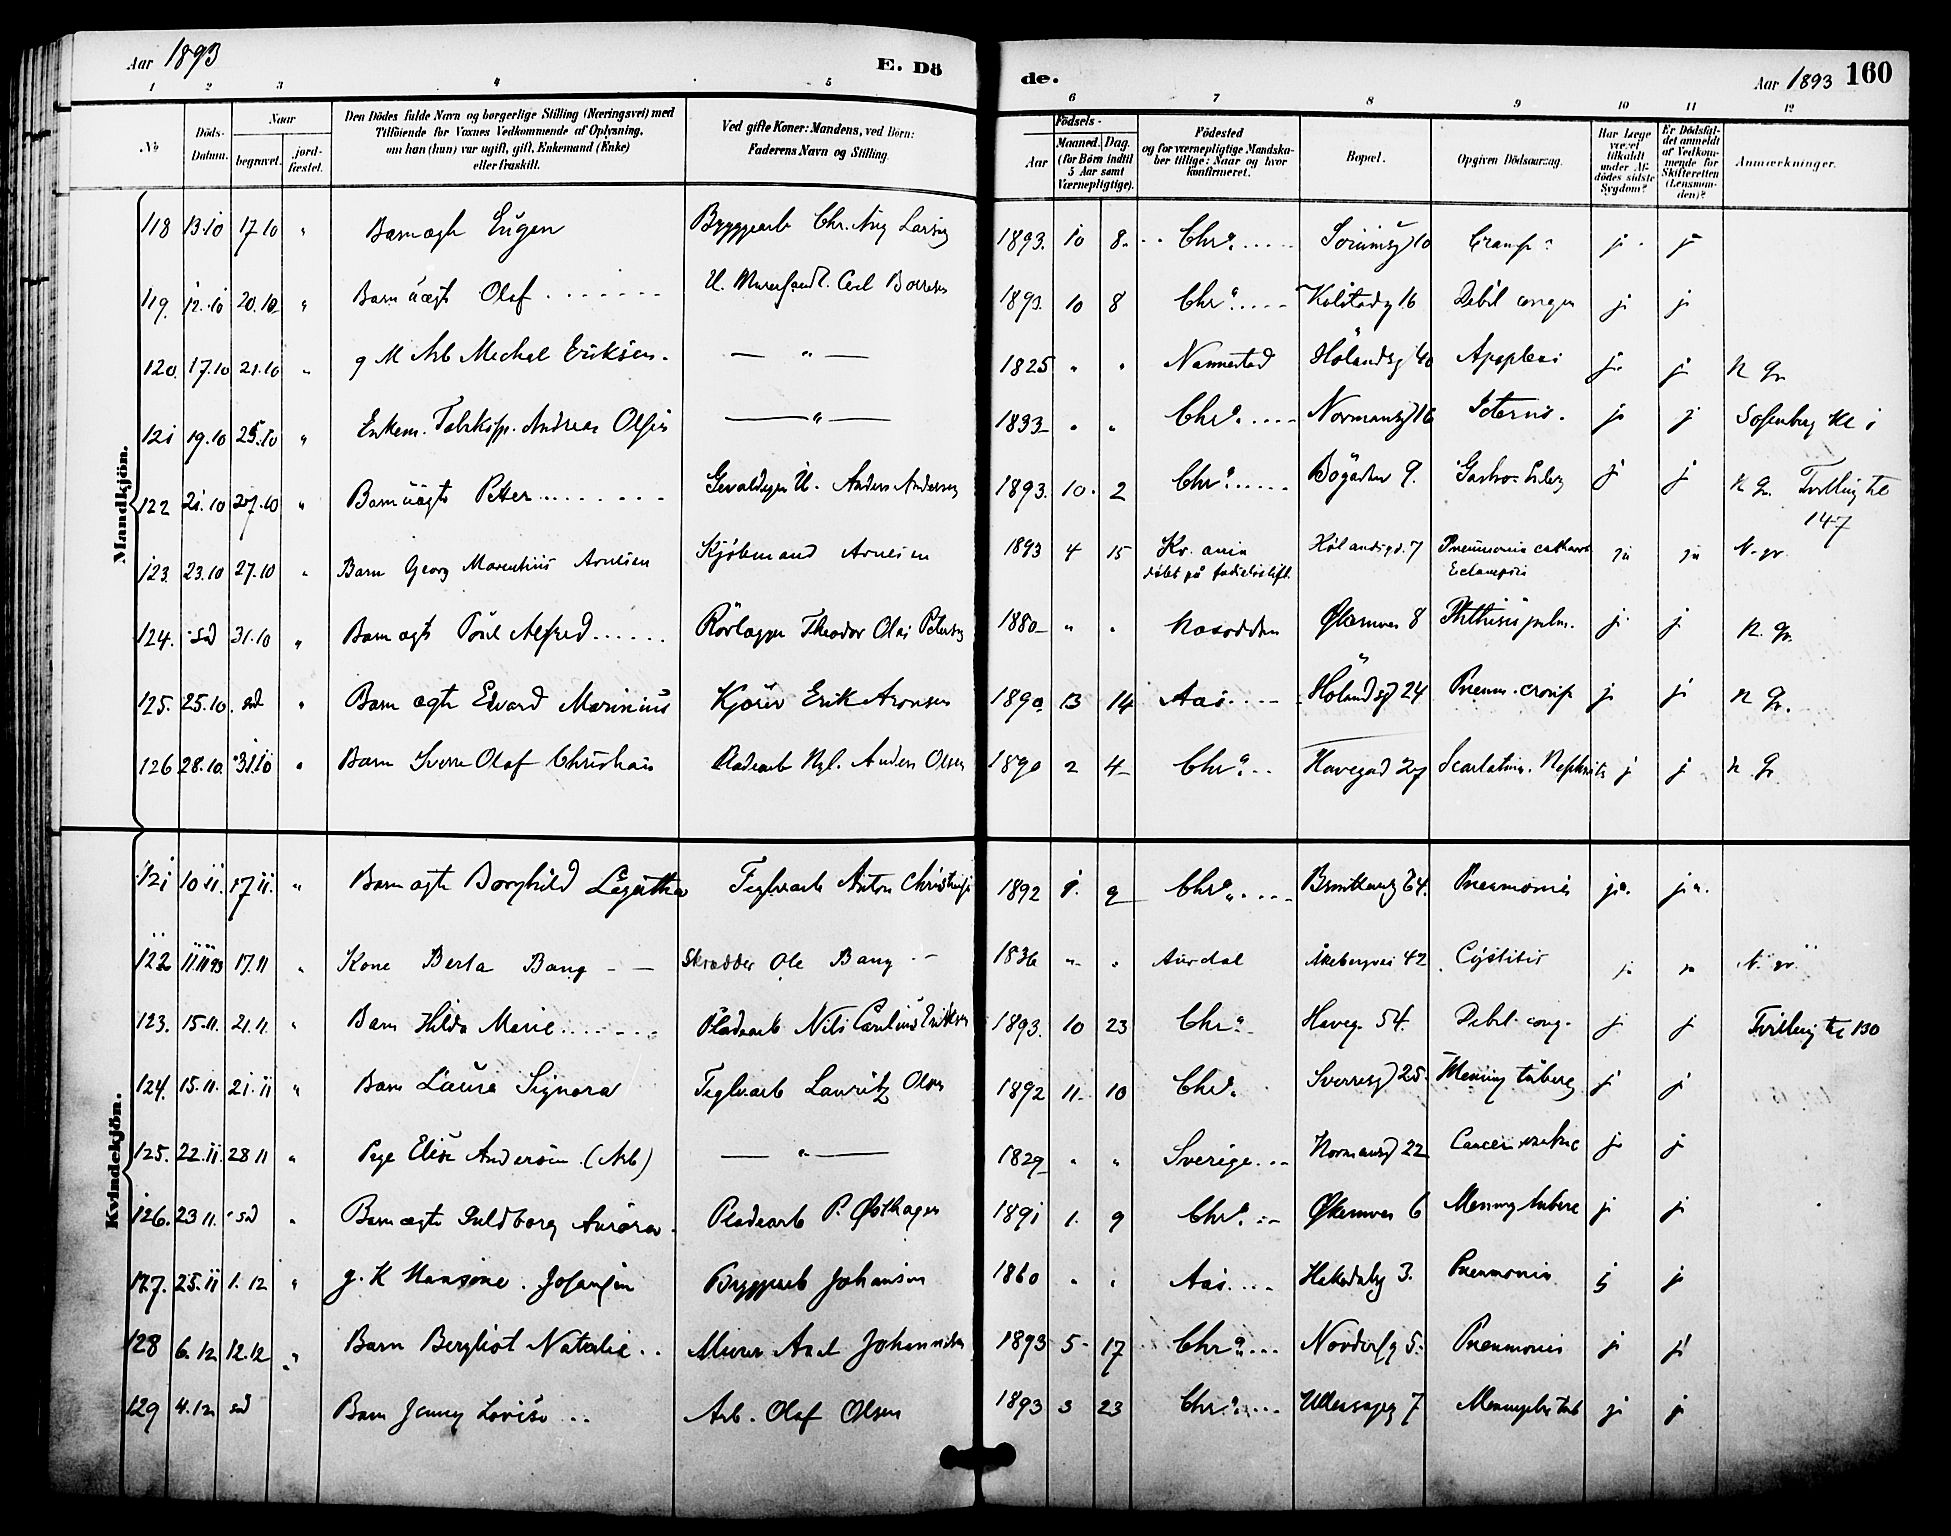 Aar 1893 E. Dö
de. Aar 1893 160
1 2 3 4 5 6 7 8 9 10 11 12
No
Döds-Datum.
Naar
begravet.
jord-fæstet.
Den Dödes fulde Navn og borgerlige Stilling (Næringsvei) med
Tilföiende for Voxnes Vedkommende af Oplysning,
om han (hun) var ugift, gift, Enkemand (Enke)
eller fraskilt.
Ved gifte Koner: Mandens, ved Börn:
Faderens Navn og Stilling.
Födsels-
Aar
Maaned. Dag.
(for Börn indtil
5 Aar samt
Værnepligtige).
Födested
og for værnepligtige Mandska-
ber tillige: Naar og hvor
konfirmeret.
Bopæl.
Opgiven Dödsaarsag.
Har Læge
været
tilkaldt
under Af-
dödes sidste
Sygdom?
Er Dödsfal-
det anmeldt
af Vedkom-
mende for
Skifteretten
(Lensman-
den)?
Anmærkninger.
Mandkjön.
118 13.10 17.10 " Barn ægte Eugen Byggearb Chr. Aug Larsen 1893. 10 8. Chr.a 10 j j
119. 12.10 20.10 " Barn uægte Olof U. Carl 1893. 10 8 Chr.a Kolstadg 16 Debil congen j j
120. 17.10 21.10 " g M Arb Mechal Eriksen. — " — 1825 " " Nannestad Hölandsg 40 Apoplexi j. j N. Gr.
121 19.10 25.10 " Enkem. Andreas Olsen — " — 1833 " " Chr.a Normannsg 16 Icterus. j j Sofienberg Kl 1
122 21.10 27.10 " Barn uægte Peter Anders Andersen 1893. 10. 2 Chr.a Bögaden 9. j j N Gr. Tvilling til
147
123. 23.10 27.10 " Barn Georg Marentius Arnesen Kjöbmand Arnesen 1893 4 15 Kr.ania Hølandsgd. 7 Pneumonia catharrh ja ja N. gr.
døbt på fødselsstift. Eclampsia
124. sad 31.10 " Barn ægte Poul Alfred Rörlægger Theodor Olai Petersen 1880 " " Næsodden Økernvei 8 Phthisis pulm. j j N. Gr.
125. 25.10. sad " Barn ægte Edvard Marinius Kjörer Erik Aronsen 1890. 13 14 Aas Hölandsg 24 Pneum. croup j j N Gr.
126 28.10. 31.10 " Barn Sverre Olaf Christian Anders Olsen 1890 2 4 Chr.a Havegad 27 Scarlatina. Nefhrits j j N. Gr.
Kvindekjön.
121 10.11. 17.11. " Barn ægte Borghild Teglvarb Anton 1892 9 Chr.a 64. Pneumonia ja. ja.
122 11.11 93 17.11 " Kone Berta Bang Skrædder Ole Bang 1836 " " Aurdal Åkebergvei 42 Cystitis ja ja N. gr.
123. 15.11. 21.11. " Barn Hilda Marie Nils Eriksen 1893. 10 23 Chr.a Haveg. 54. Debil. cong. j j Tvilling til 130
124. 15.11. 21.11 " Barn Laura Signora Teglvarb Lauritz Olsen 1892 11 10 Chr.a Sverresg 25 Mening tuberc j j
125. 22.11. 28.11 " Pige Elise Andersen (Arb) — " — 1829 " " Sverige Normannsg 22 Cancer j j
126. 23.11. sad " Barn ægte Guldborg Aurora Pladearb P. Østhagen 1891 1. 9 Chr.a Økernvei 6 Mening tuberc j j
127. 25.11 1.12 " g. K Hansine Johansen Byggearb Johansen 1860 " " Aas Hakadalsg 3. Pneumonia j j
128 6.12 12.12 " Barn Bergliot Natalie Murer Axel Johannesen 1893 5 17 Chr.a 5. Pneumonia j j
129 4.12 sad Barn Jenny Lovise Arb. Olaf Olsen 1893 3 23 Chr.a 7 j j